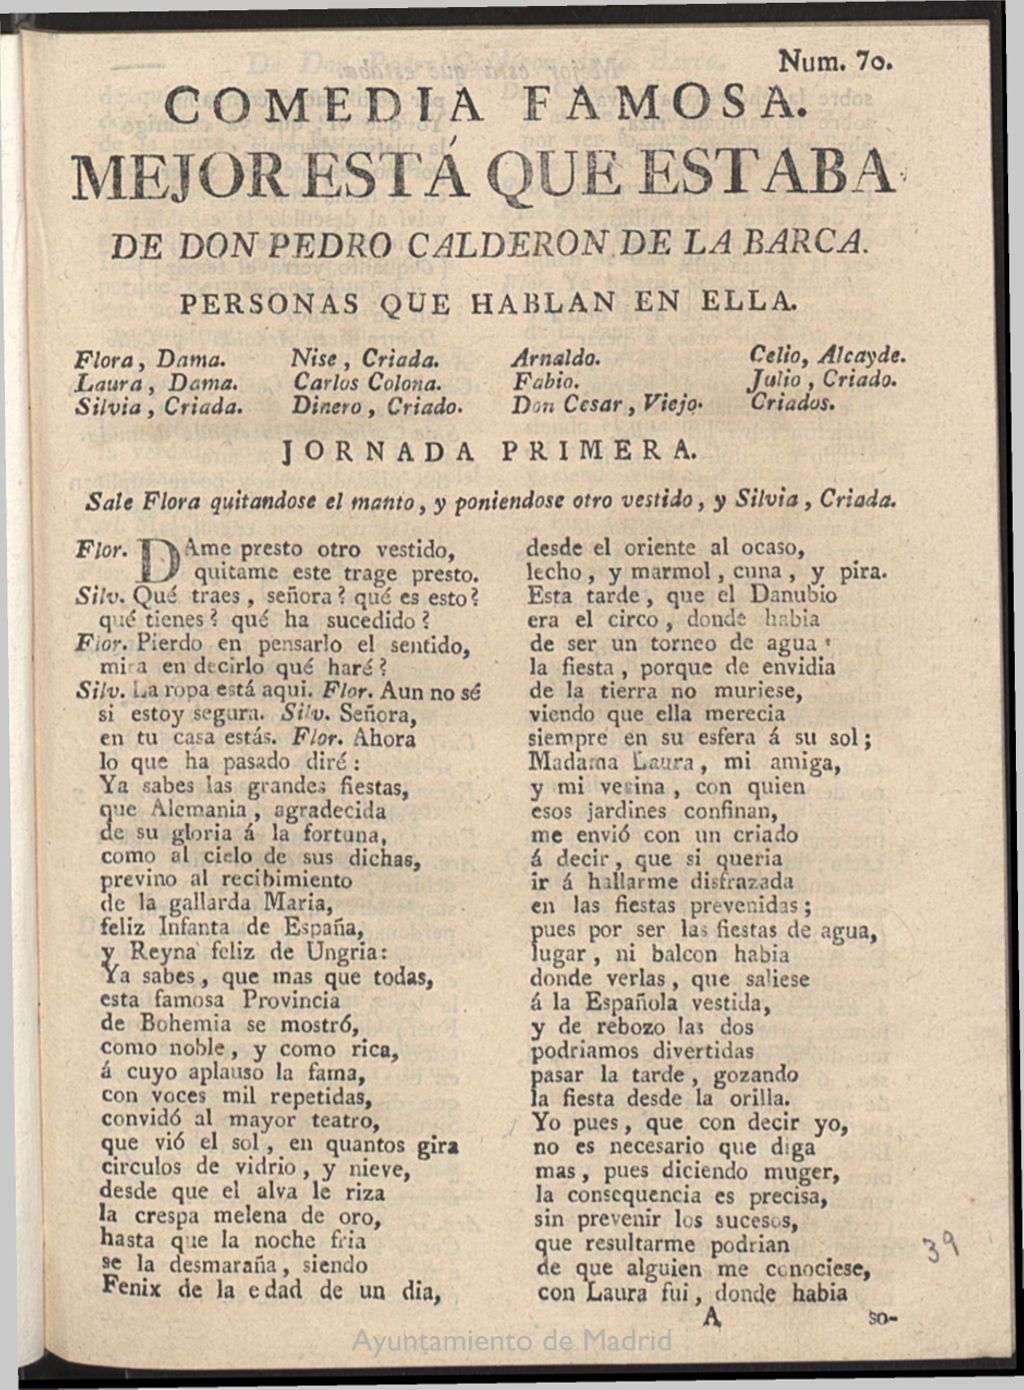 Num. 70.
COMEDIA FAMOSA.
MEJOR ESTÁ QUE ESTABA
DE DON PEDRO CALDERON DE LA BARCA.
PERSONAS QUE HABLAN EN ELLA.
Flora, Dama.
Laura, Dama.
Silvia, Criada.
Nise, Criada.
Carlos Colona.
Dinero, Criado.
Arnaldo.
Fabio.
Don Cesar, Viejo.
Celio, Alcayde.
Julio, Criado.
Criados.
JORNADA PRIMERA.
Sale Flora quitandose el manto, y poniendose otro vestido, y Silvia, Criada.
Flor. DAme presto otro vestido,
quitame este trage presto.
Silv. Qué traes, señora? qué es esto?
qué tienes? qué ha sucedido?
Flor. Pierdo en pensarlo el sentido,
mira en decirlo qué haré?
Silv. La ropa está aqui. Flor. Aun no sé
si estoy segura. Silv. Señora,
en tu casa estás. Flor. Ahora
lo que ha pasado diré:
Ya sabes las grandes fiestas,
que Alemania, agradecida
de su gloria á la fortuna,
como al cielo de sus dichas,
previno al recibimiento
de la gallarda Maria,
feliz Infanta de España,
y Reyna feliz de Ungria:
Ya sabes, que mas que todas,
esta famosa Provincia
de Bohemia se mostró,
como noble, y como rica,
á cuyo aplauso la fama,
con voces mil repetidas,
convidó al mayor teatro,
que vió el sol, en quantos gira
circulos de vidrio, y nieve,
desde que el alva le riza
la crespa melena de oro,
hasta que la noche fria
se la desmaraña, siendo
Fenix de la edad de un dia,
desde el oriente al ocaso,
lecho, y marmol, cuna, y pira.
Esta tarde, que el Danubio
era el circo, donde habia
de ser un torneo de agua
la fiesta, porque de envidia
de la tierra no muriese,
viendo que ella merecia
siempre en su esfera á su sol;
Madama Laura, mi amiga,
y mi vecina, con quien
esos jardines confinan,
me envió con un criado
á decir, que si queria
ir á hallarme disfrazada
en las fiestas prevenidas;
pues por ser las fiestas de agua,
lugar, ni balcon habia
donde verlas, que saliese
á la Española vestida,
y de rebozo las dos
podriamos divertidas
pasar la tarde, gozando
la fiesta desde la orilla.
Yo pues, que con decir yo,
no es necesario que diga
mas, pues diciendo muger,
la consequencia es precisa,
sin prevenir los sucesos,
que resultarme podrian
de que alguien me conociese,
con Laura fui, donde habia
39
A
so-
Ayuntamiento de Madrid